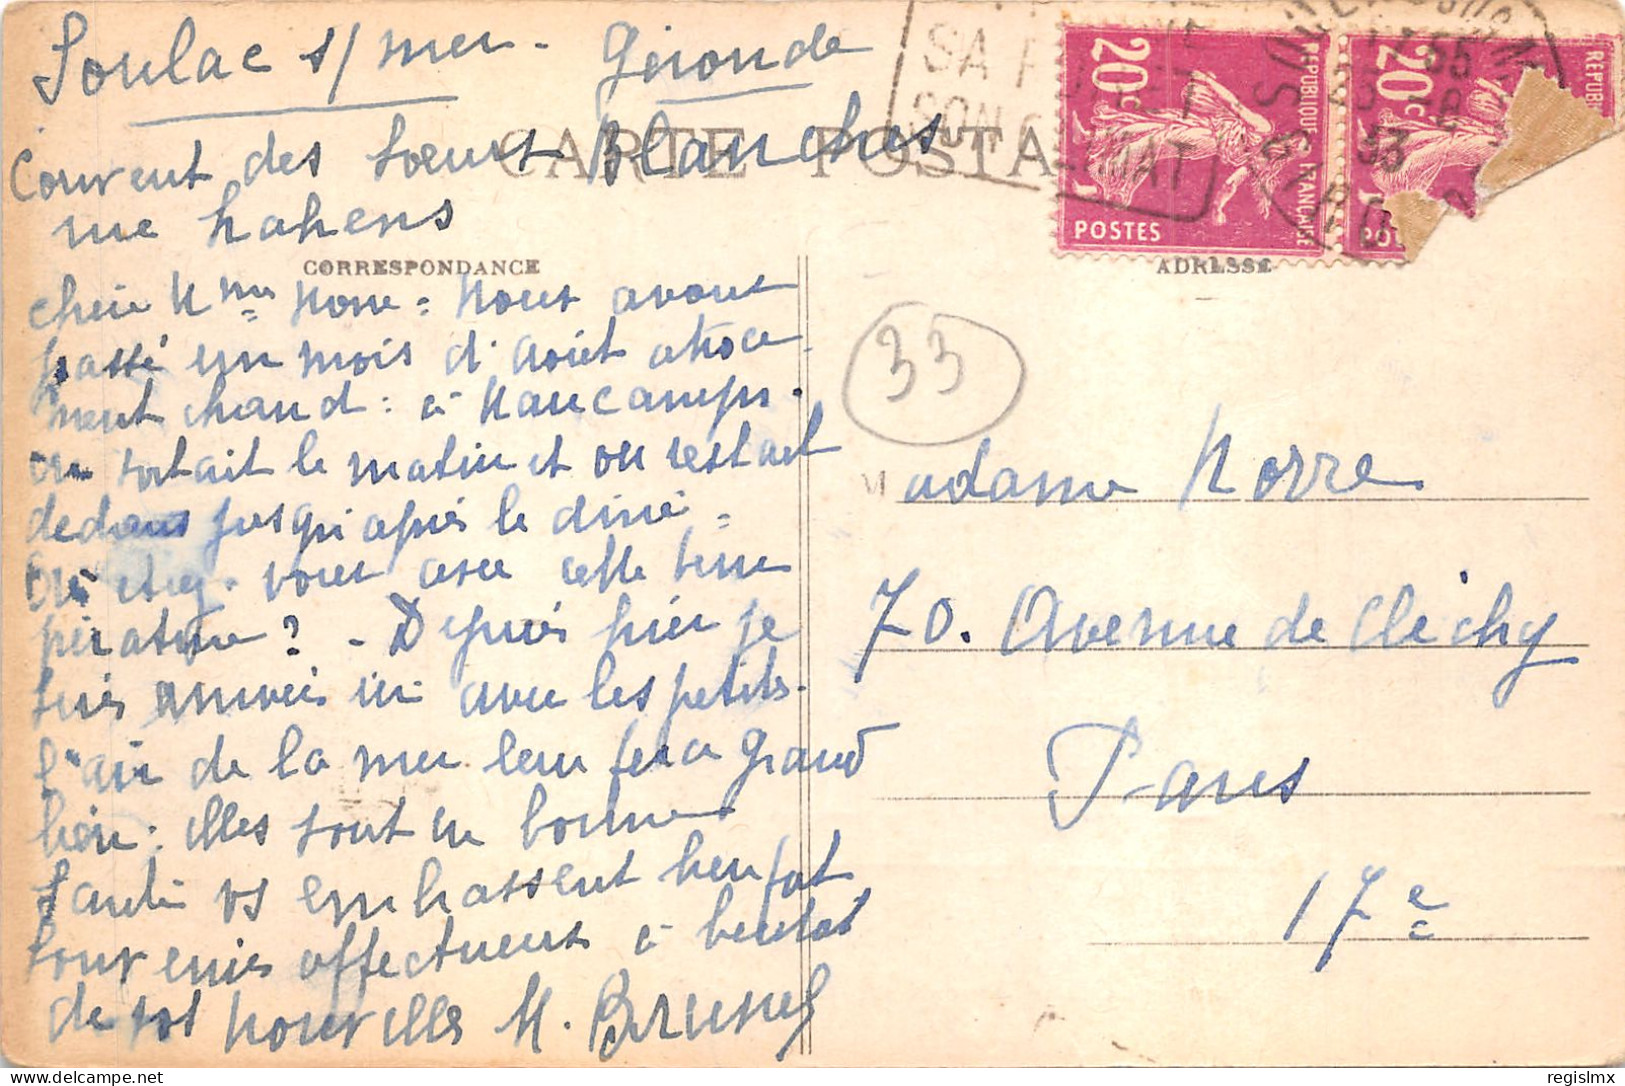 Soulac s/ mer - Gironde
Couvent des Soeurs Blanches
rue Lahens
CARTE POSTA
CORRESPONDANCE
ADRESSE
SA
SON CLIMAT
20c
20c
REPUBLIQUE FRANÇAISE
POSTES
33
Chère Mme Norre = Nous avons
passé un mois d'août atroce
ment chaud : à Maucamps -
on sortait le matin et on restait
dedans jusqu'après le dîné =
pérature ? - Depuis hier je
suis arrivée ici avec les petites -
l'air de la mer leur fera grand
bien : elles sont en bonne
santé vs embrassent bien fort
souvenirs affectueux à bientôt
de vos nouvelles M. Brunel
Madame Norre
70. Avenue de Clichy
Paris
17e
delcampe.net
regislmx